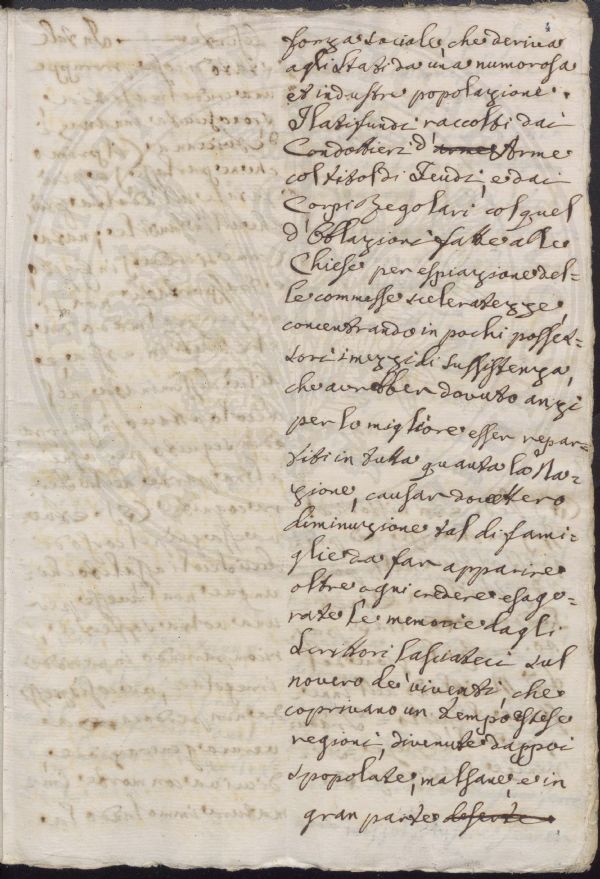 forza sociale, che deriva
agli Stati da una numorosa
et industre popolazione.
I latifundi raccolti dai
Condottieri d'arme Arme
col titol di Feudi, e dai
Corpi Regolari col quel
d'Obblazioni fatte alle
Chiese per espiazione del=
le commesse sceleratezze,
concentrando in pochi posses=
sori i mezzi di sussistenza,
che avrebber dovuto anzi
per lo migliore esser repar=
titi in tutta quanta la Na=
zione, causar dovettero
diminuzione tal di fami=
glie da far apparire
oltre ogni credere esage=
rate le memorie dagli
Scrittori lasciateci sul
novero de' viventi, che
coprivano un tempo estese
regioni, divenute dappoi
spopolate, malsane, e in
gran parte deserte.